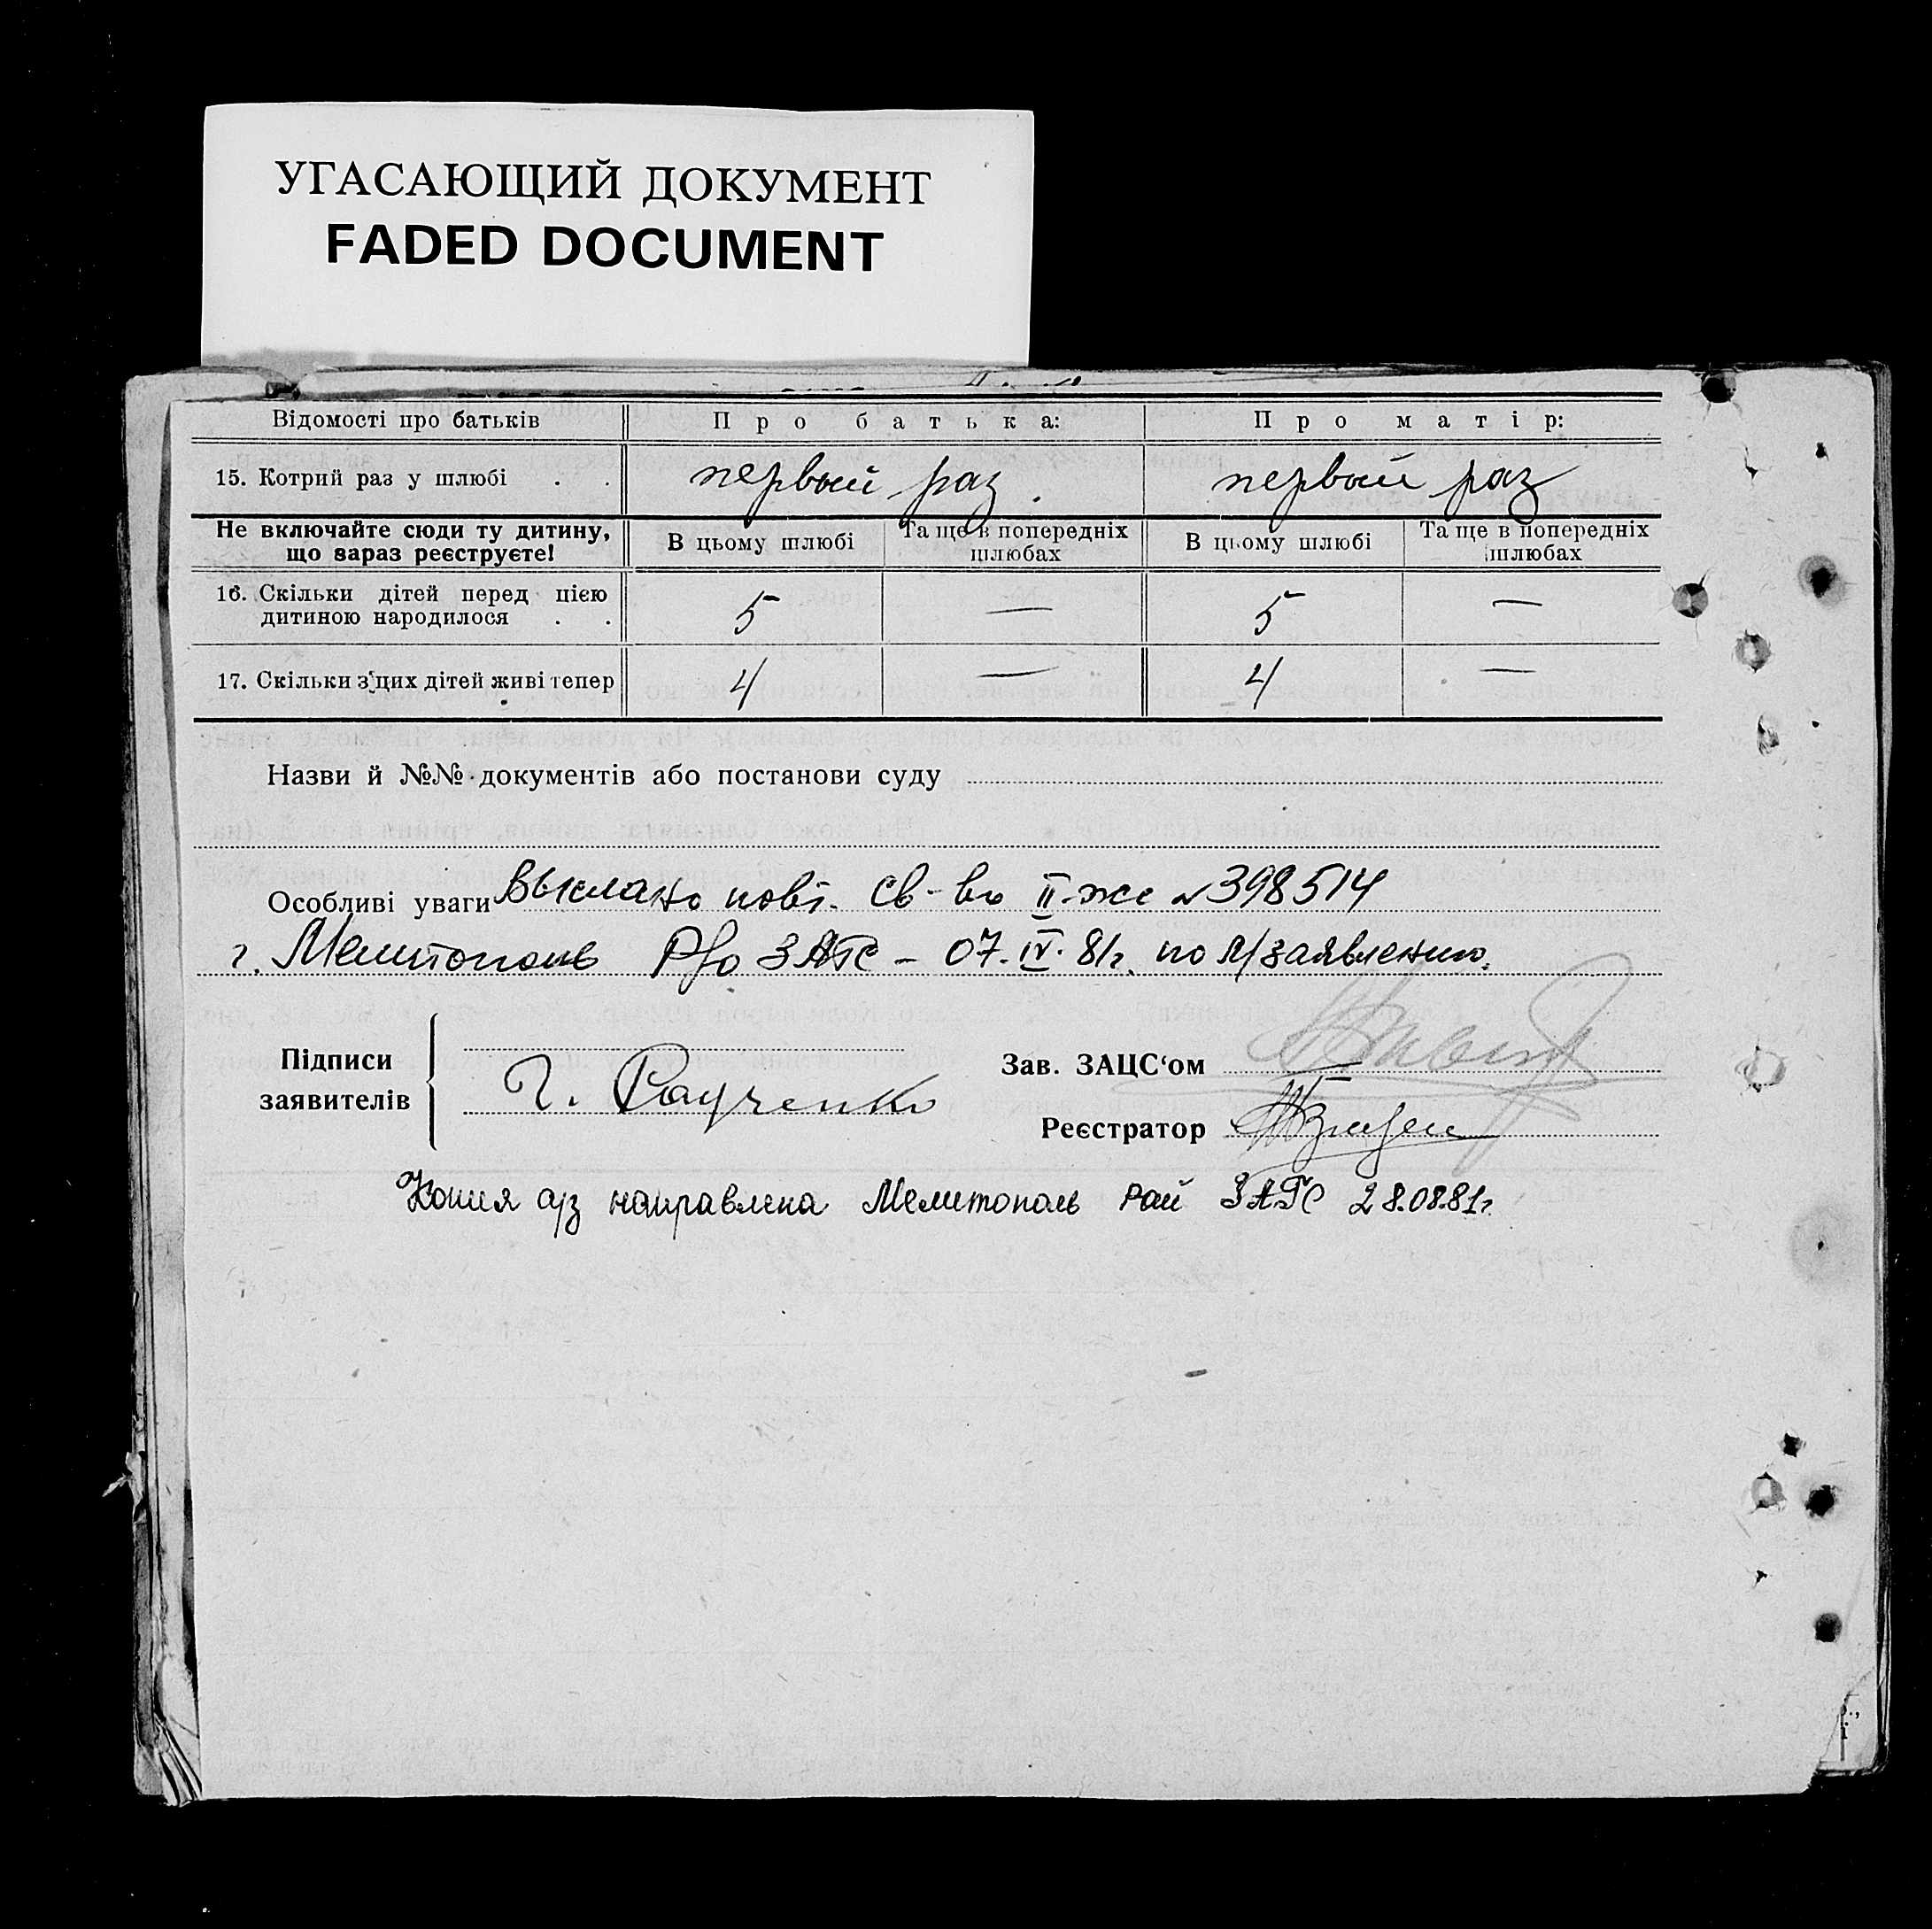 УГАСАЮЩИЙ ДОКУМЕНТ
FADED DOCUMENT
Відомості про батьків Про батька: Про матір:
15. Котрий раз у шлюбі . . первый раз . первый раз
Не включайте сюди ту дитину, що зараз реєструєте! В цьому шлюбі Та ще в попередніх шлюбах В цьому шлюбі Та ще в попередніх шлюбах
16. Скільки дітей перед цією дитиною народилося . . 5 — 5 —
17. Скільки з цих дітей живі тепер 4 — 4 —
Назви й №№ документів або постанови суду
Особливі уваги повт. св-во II-жс № 398514
г. Мелитополь Р/о ЗАГС – 07.IV.81г. по заявлению.
Підписи заявителів
Г. Радченко
Зав. ЗАЦС‘ом
Реєстратор
Копия а/з направлена Мелитополь рай ЗАГС 28.08.81г.